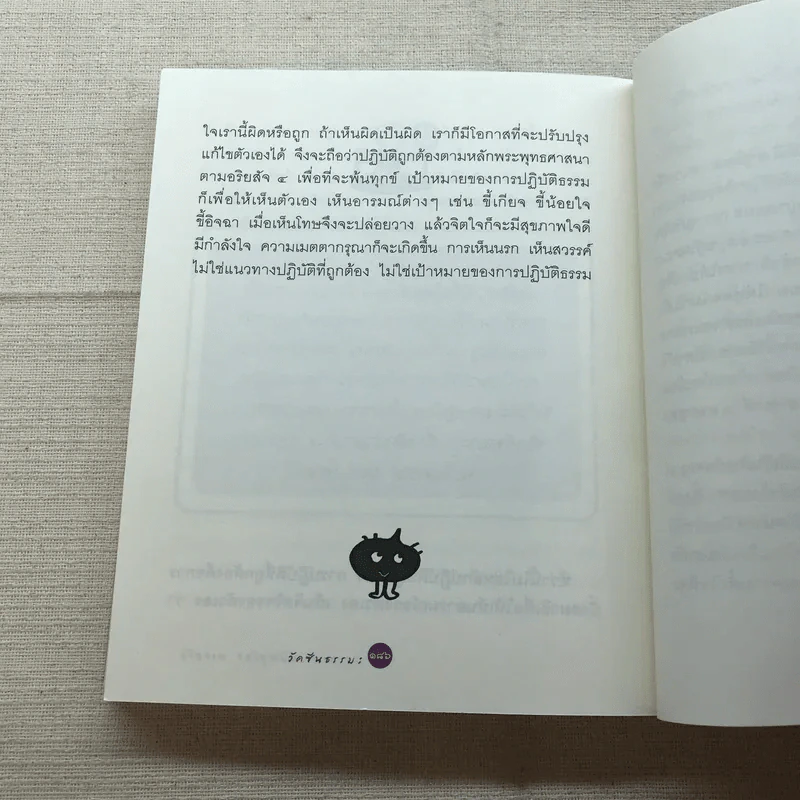 ใจเรานี้ผิดหรือถูก ถ้าเห็นผิดเป็นผิด เราก็มีโอกาสที่จะปรับปรุง
แก้ไขตัวเองได้ จึงจะถือว่าปฏิบัติถูกต้องตามหลักพระพุทธศาสนา
ตามอริยสัจ ๔ เพื่อที่จะพ้นทุกข์ เป้าหมายของการปฏิบัติธรรม
ก็เพื่อให้เห็นตัวเอง เห็นอารมณ์ต่างๆ เช่น ขี้เกียจ ขี้น้อยใจ
ขี้อิจฉา เมื่อเห็นโทษจึงจะปล่อยวาง แล้วจิตใจก็จะมีสุขภาพใจดี
มีกำลังใจ ความเมตตากรุณาก็จะเกิดขึ้น การเห็นนรก เห็นสวรรค์
ไม่ใช่แนวทางปฏิบัติที่ถูกต้อง ไม่ใช่เป้าหมายของการปฏิบัติธรรม
๑๘๖